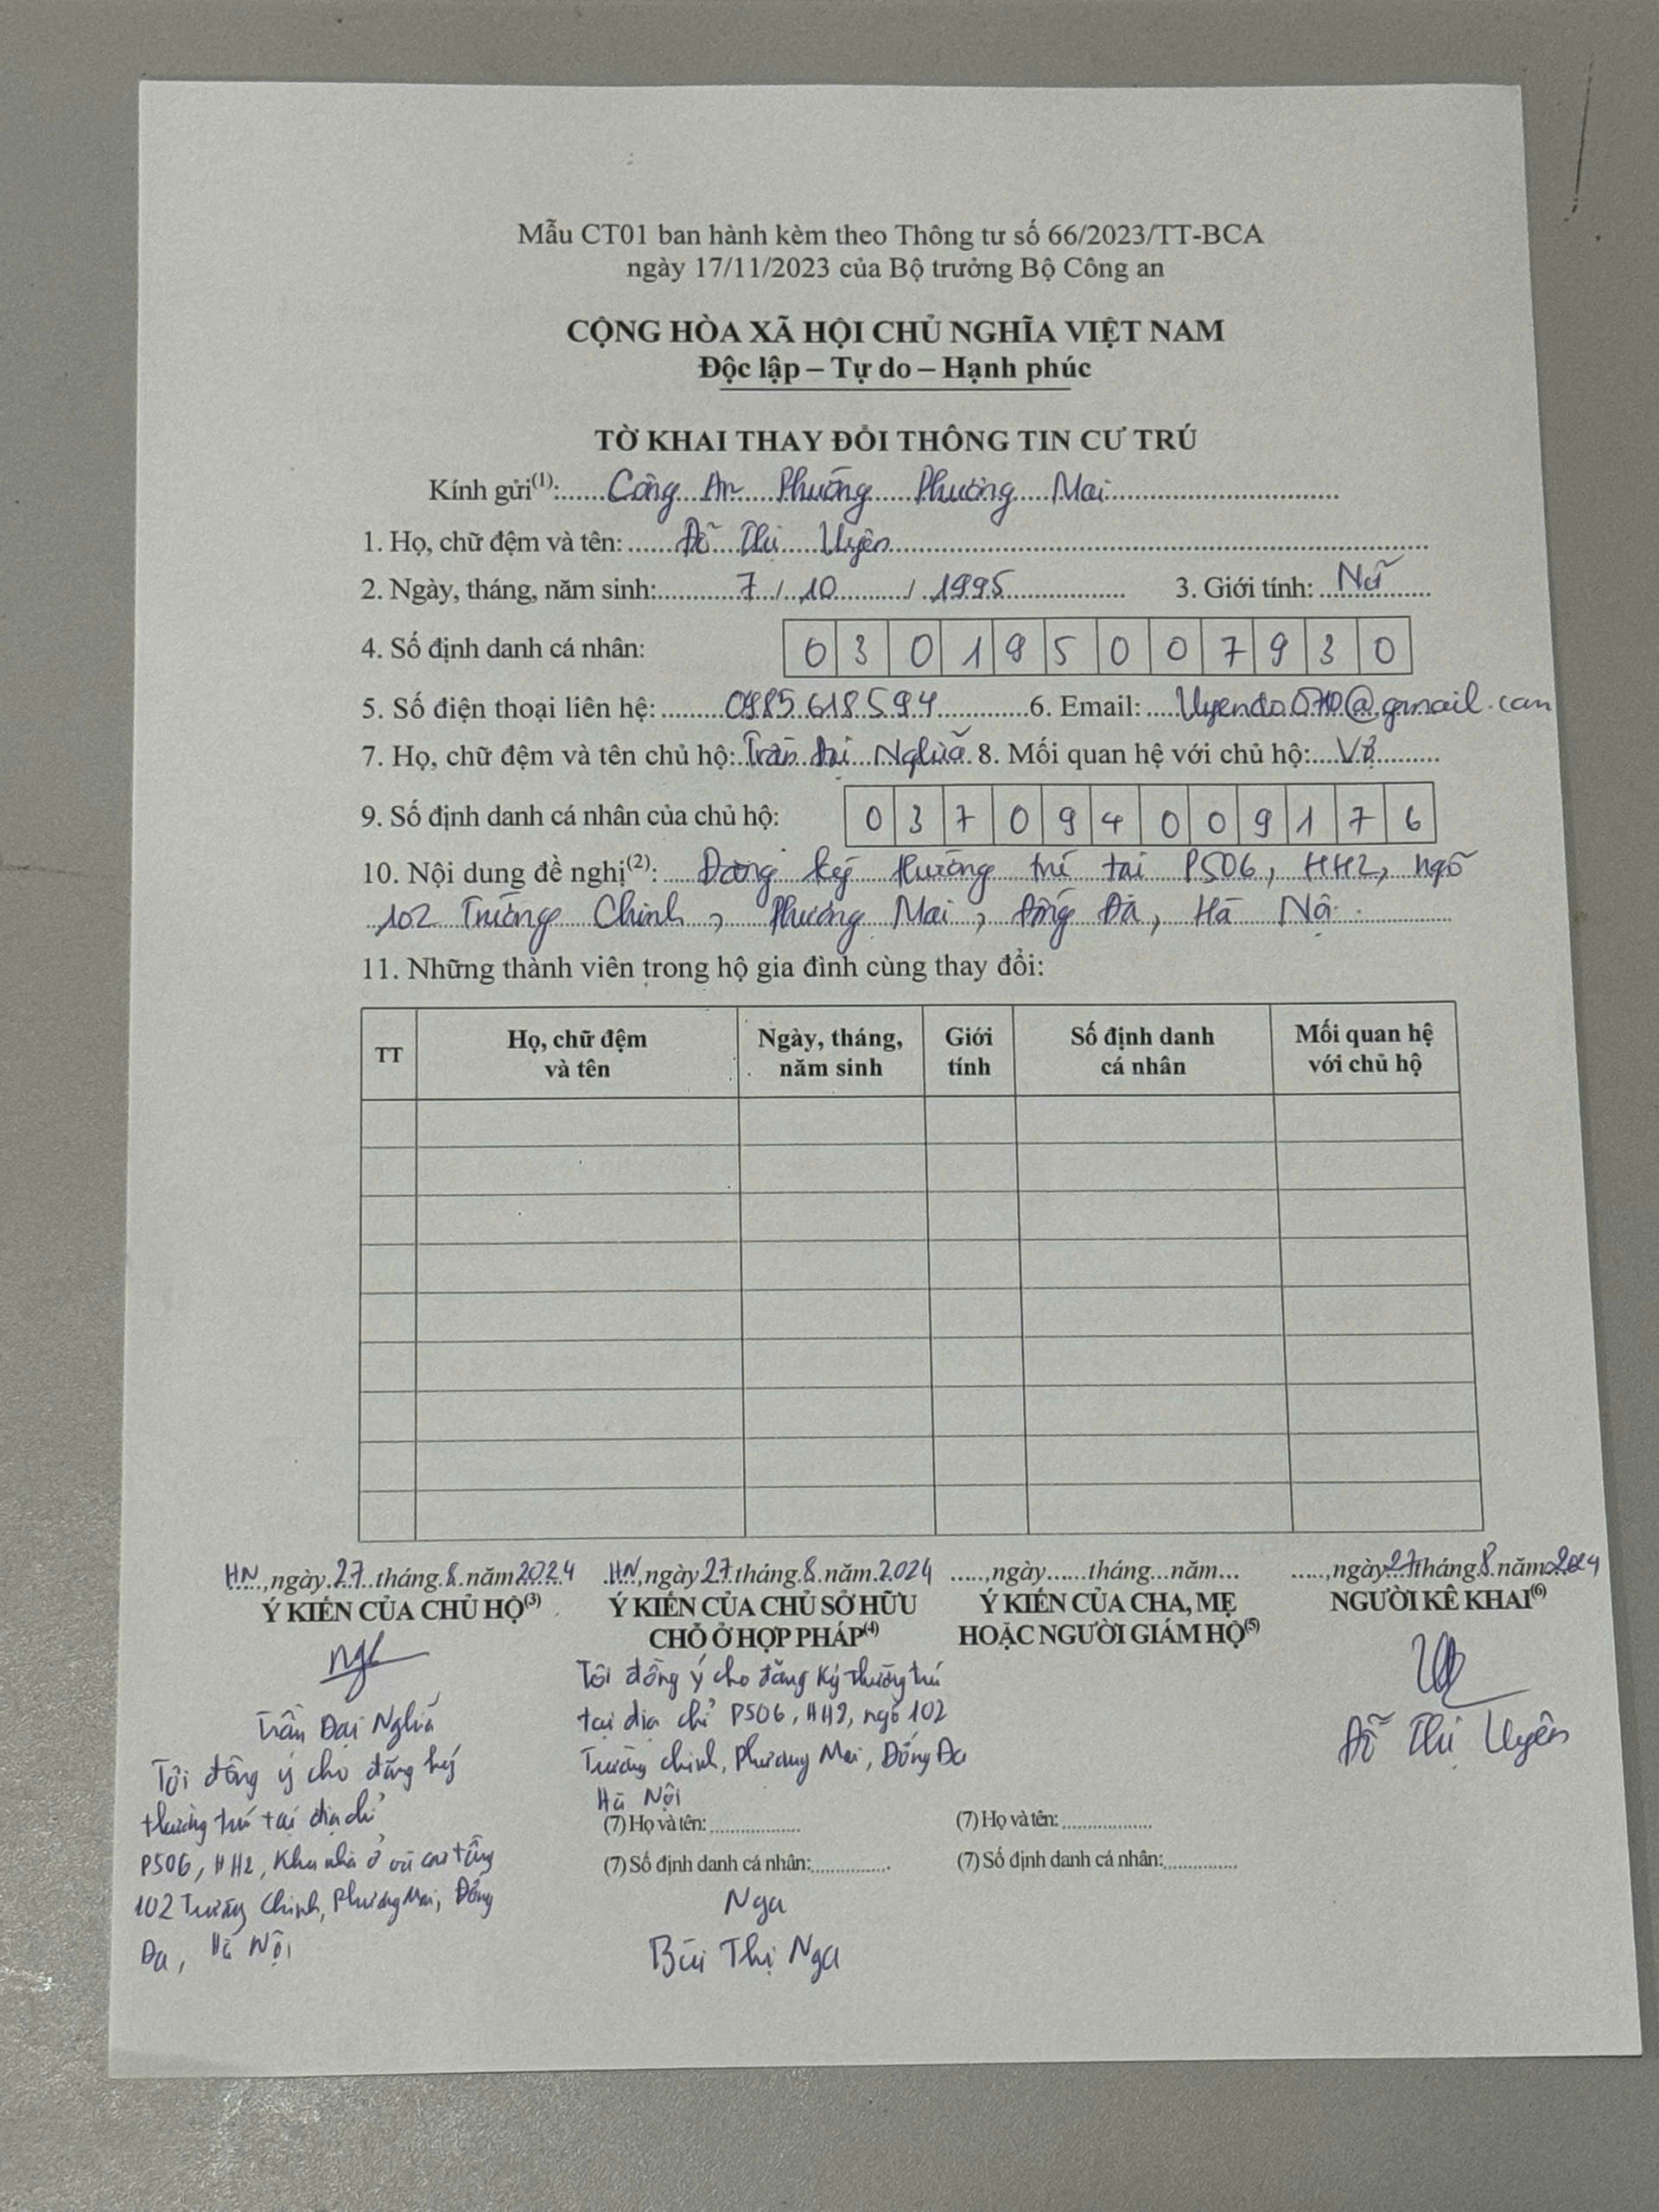 Mẫu CT01 ban hành kèm theo Thông tư số 66/2023/TT-BCA
ngày 17/11/2023 của Bộ trưởng Bộ Công an
CỘNG HÒA XÃ HỘI CHỦ NGHĨA VIỆT NAM
Độc lập – Tự do – Hạnh phúc
TỜ KHAI THAY ĐỔI THÔNG TIN CƯ TRÚ
Kính gửi(1): Công An Phường Phương Mai
1. Họ, chữ đệm và tên: Đỗ Thị Uyên
2. Ngày, tháng, năm sinh: 7 / 10 / 1995 3. Giới tính: Nữ
4. Số định danh cá nhân: 0 3 0 1 9 5 0 0 7 9 3 0
5. Số điện thoại liên hệ: 0985618594 6. Email: Uyendo.0710@gmail.com
7. Họ, chữ đệm và tên chủ hộ: Trần Đại Nghĩa 8. Mối quan hệ với chủ hộ: Vợ
9. Số định danh cá nhân của chủ hộ: 0 3 7 0 9 4 0 0 9 1 7 6
10. Nội dung đề nghị(2): Đăng ký thường trú tại P506, HH2, ngõ
102 Trường Chinh, Phương Mai, Đống Đa, Hà Nội.
11. Những thành viên trong hộ gia đình cùng thay đổi:
TT Họ, chữ đệm và tên Ngày, tháng, năm sinh Giới tính Số định danh cá nhân Mối quan hệ với chủ hộ
HN, ngày 27 tháng 8 năm 2024
Ý KIẾN CỦA CHỦ HỘ(3)
Trần Đại Nghĩa
Tôi đồng ý cho đăng ký
thường trú tại địa chỉ
P506, HH2, Khu nhà ở cao tầng
102 Trường Chinh, Phương Mai, Đống
Đa, Hà Nội
HN, ngày 27 tháng 8 năm 2024
Ý KIẾN CỦA CHỦ SỞ HỮU
CHỖ Ở HỢP PHÁP(4)
Tôi đồng ý cho đăng ký thường trú
tại địa chỉ P506, HH2, ngõ 102
Trường Chinh, Phương Mai, Đống Đa
Hà Nội
(7) Họ và tên:
(7) Số định danh cá nhân:
Nga
Bùi Thị Nga
....., ngày.......tháng...năm...
Ý KIẾN CỦA CHA, MẸ
HOẶC NGƯỜI GIÁM HỘ(5)
(7) Họ và tên:
(7) Số định danh cá nhân:
....., ngày 27 tháng 8 năm 2024
NGƯỜI KÊ KHAI(6)
Đỗ Thị Uyên